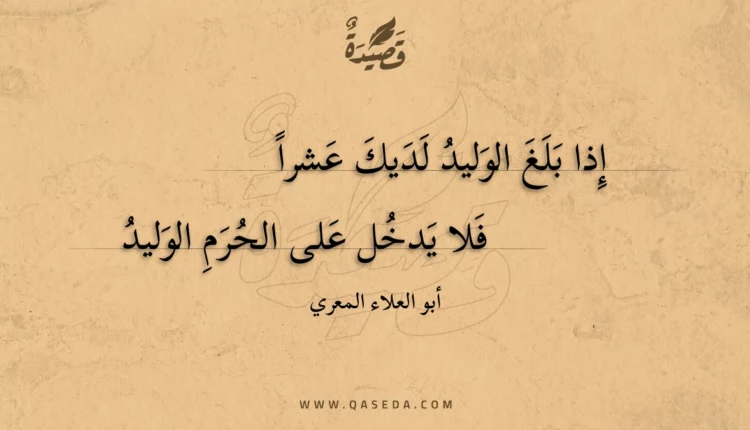 قَصِيْدَةٌ
إِذا بَلَغَ الوَليدُ لَدَيكَ عَشراً
فَلا يَدخُل عَلى الحُرَمِ الوَليدُ
أبو العلاء المعري
WWW.QASEDA.COM